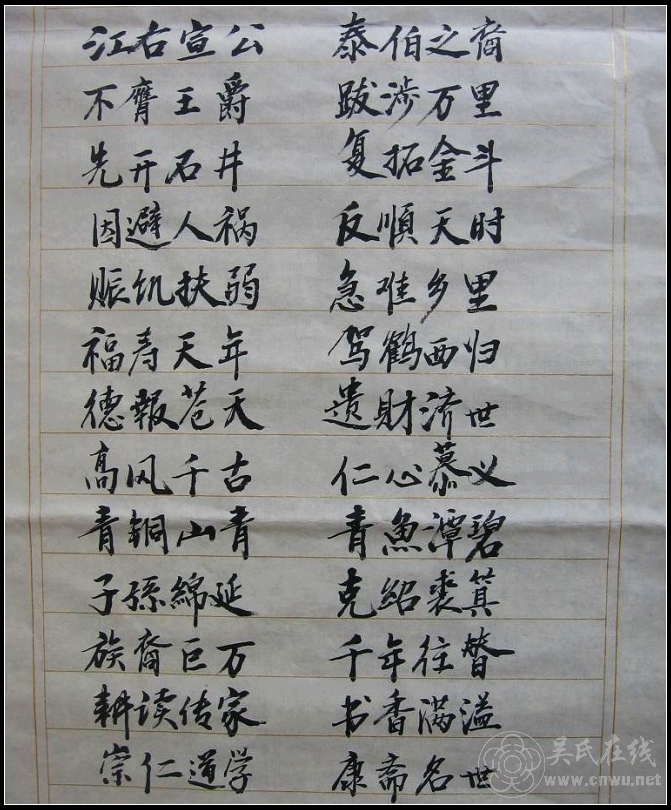 江右宣公 泰伯之裔
不膺王爵 跋涉万里
先开石井 复拓金斗
因避人祸 反顺天时
赈饥扶弱 急难乡里
福寿天年 驾鹤西归
德報苍天 遗財济世
高风千古 仁心慕义
青铜山青 青魚潭碧
子孫綿延 克绍裘箕
族裔巨万 千年往昔
耕读传家 书香满溢
崇仁道学 康斋名世
吴氏在线
www.cnwu.net